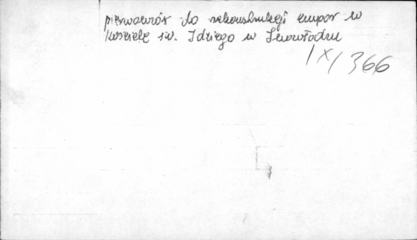 pierwowzór do rekonstrukcji empor w
kościele św. Idziego w Inowłodzu
IX/366